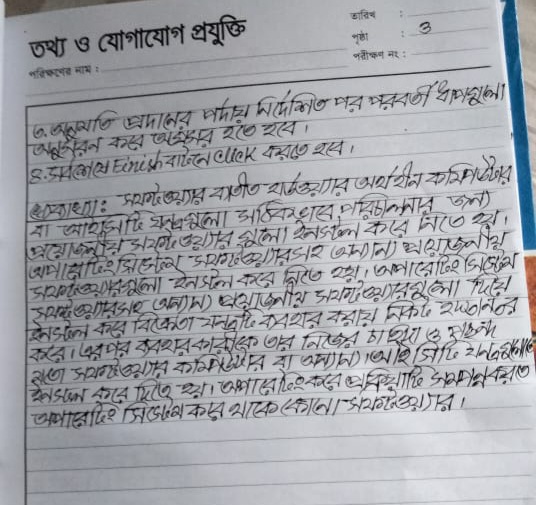 তথ্য ও যোগাযোগ প্রযুক্তি
তারিখ :
পৃষ্ঠা : 3
পরীক্ষণের নাম :
পরীক্ষণ নং :
৩. অনুমতি প্রদানের পর্দায় নির্দেশিত পর পরবর্তী ধাপগুলো
অনুসরন করে অগ্রসর হতে হবে।
৪. সবশেষে Finish বাটনে click করতে হবে।
ব্যাখ্যা: সফটওয়্যার ব্যতীত হার্ডওয়্যার অর্থহীন কম্পিউটার
বা আইসিটি যন্ত্রগুলো সঠিকভাবে পরিচালনার জন্য
প্রয়োজনীয় সফটওয়্যার গুলো ইনস্টল করে নিতে হয়।
অপারেটিং সিস্টেম সফটওয়্যারসহ অন্যান্য প্রয়োজনীয়
সফটওয়্যারগুলো ইনস্টল করে নিতে হয়। অপারেটিং সিস্টেম
সফটওয়্যারসহ অন্যান্য প্রয়োজনীয় সফটওয়্যারগুলো দিয়ে
ইনস্টল করে বিক্রেতা যন্ত্রটি ব্যবহার করায় নিকট হস্তান্তর
করে। এরপর ব্যবহারকারীকে তার নিজের চাহিদা ও পছন্দ
মতো সফটওয়্যার কম্পিউটার বা অন্যান্য আইসিটি যন্ত্রগুলো
ইনস্টল করে দিতে হয়। অপারেটিং করে প্রক্রিয়াটি সম্পন্ন করতে
অপারেটিং সিস্টেম করে থাকে কোনো সফটওয়্যার।